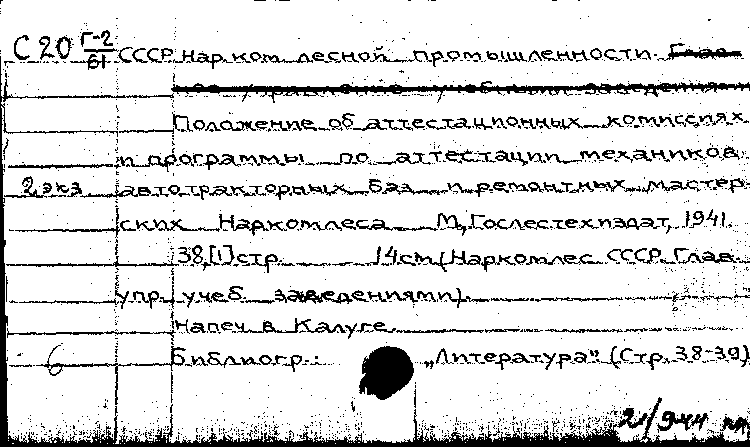 С20 Г-2/61 СССР Нар. ком. лесной промышленности. Глав-
ное управление учебными заведениями
Положение об аттестационных комиссиях
и программы по аттестации механиков
2 экз. автотракторных баз и ремонтных мастер-
ских Наркомлеса М., Гослестехиздат, 1941.
38,[1] стр. 14 см (Наркомлес СССР. Глав.
упр. учеб. заведениями).
Напеч. в Калуге.
6 Библиогр.: „Литература" (Стр. 38-39)